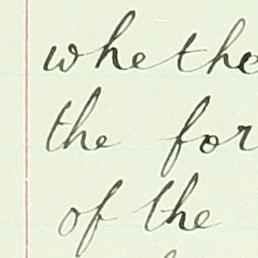 whethe
the for
of the